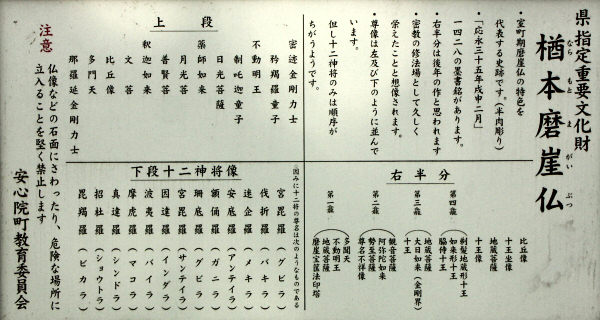 県指定重要文化財
楢本磨崖仏
なら もと ま がい ぶつ
・室町期磨崖仏の特色を
代表する史跡です。(半肉彫り)
・「応永三十五年戊申二月」
一四二八の墨書銘があります。
・右半分は後年の作と思われます
・密教の修法場として久しく
栄えたことと想像されます。
・尊像は左及び下のように並んで
います。
但し十二神将のみは順序が
ちがうようです。
上段
密迹金剛力士
矜羯羅童子
不動明王
制吒迦童子
日光菩薩
薬師如来
月光菩
普賢菩
釈迦如来
文菩
比丘像
多聞天
那羅延金剛力士
右半分
比丘像
十王坐像
地蔵菩薩
十王像
第四龕
剃髪地蔵形十王
如来形十王
脇侍十王
第三龕
地蔵菩薩
大日如来(金剛界)
十王
第二龕
観音菩薩
阿弥陀如来
勢至菩薩
尊名不祥像
第一龕
多聞天
不動明王
地蔵菩薩
磨崖宝篋法印塔
下段十二神将像
※因みに十二将の尊名は次のようなものである
宮毘羅(グビラ)
伐折羅(バキラ)
迷企羅(メキラ)
安底羅(アンテイラ)
頞儞羅(ガニラ)
珊底羅(グビラ)
宮毘羅(サンテイラ)
因達羅(インダラ)
波夷羅(バイラ)
摩虎羅(マコラ)
真達羅(シンドラ)
招杜羅(ショウトラ)
毘羯羅(ビカラ)
注意
仏像などの石面にさわったり、危険な場所に
立入ることを堅く禁止します
安心院町教育委員会